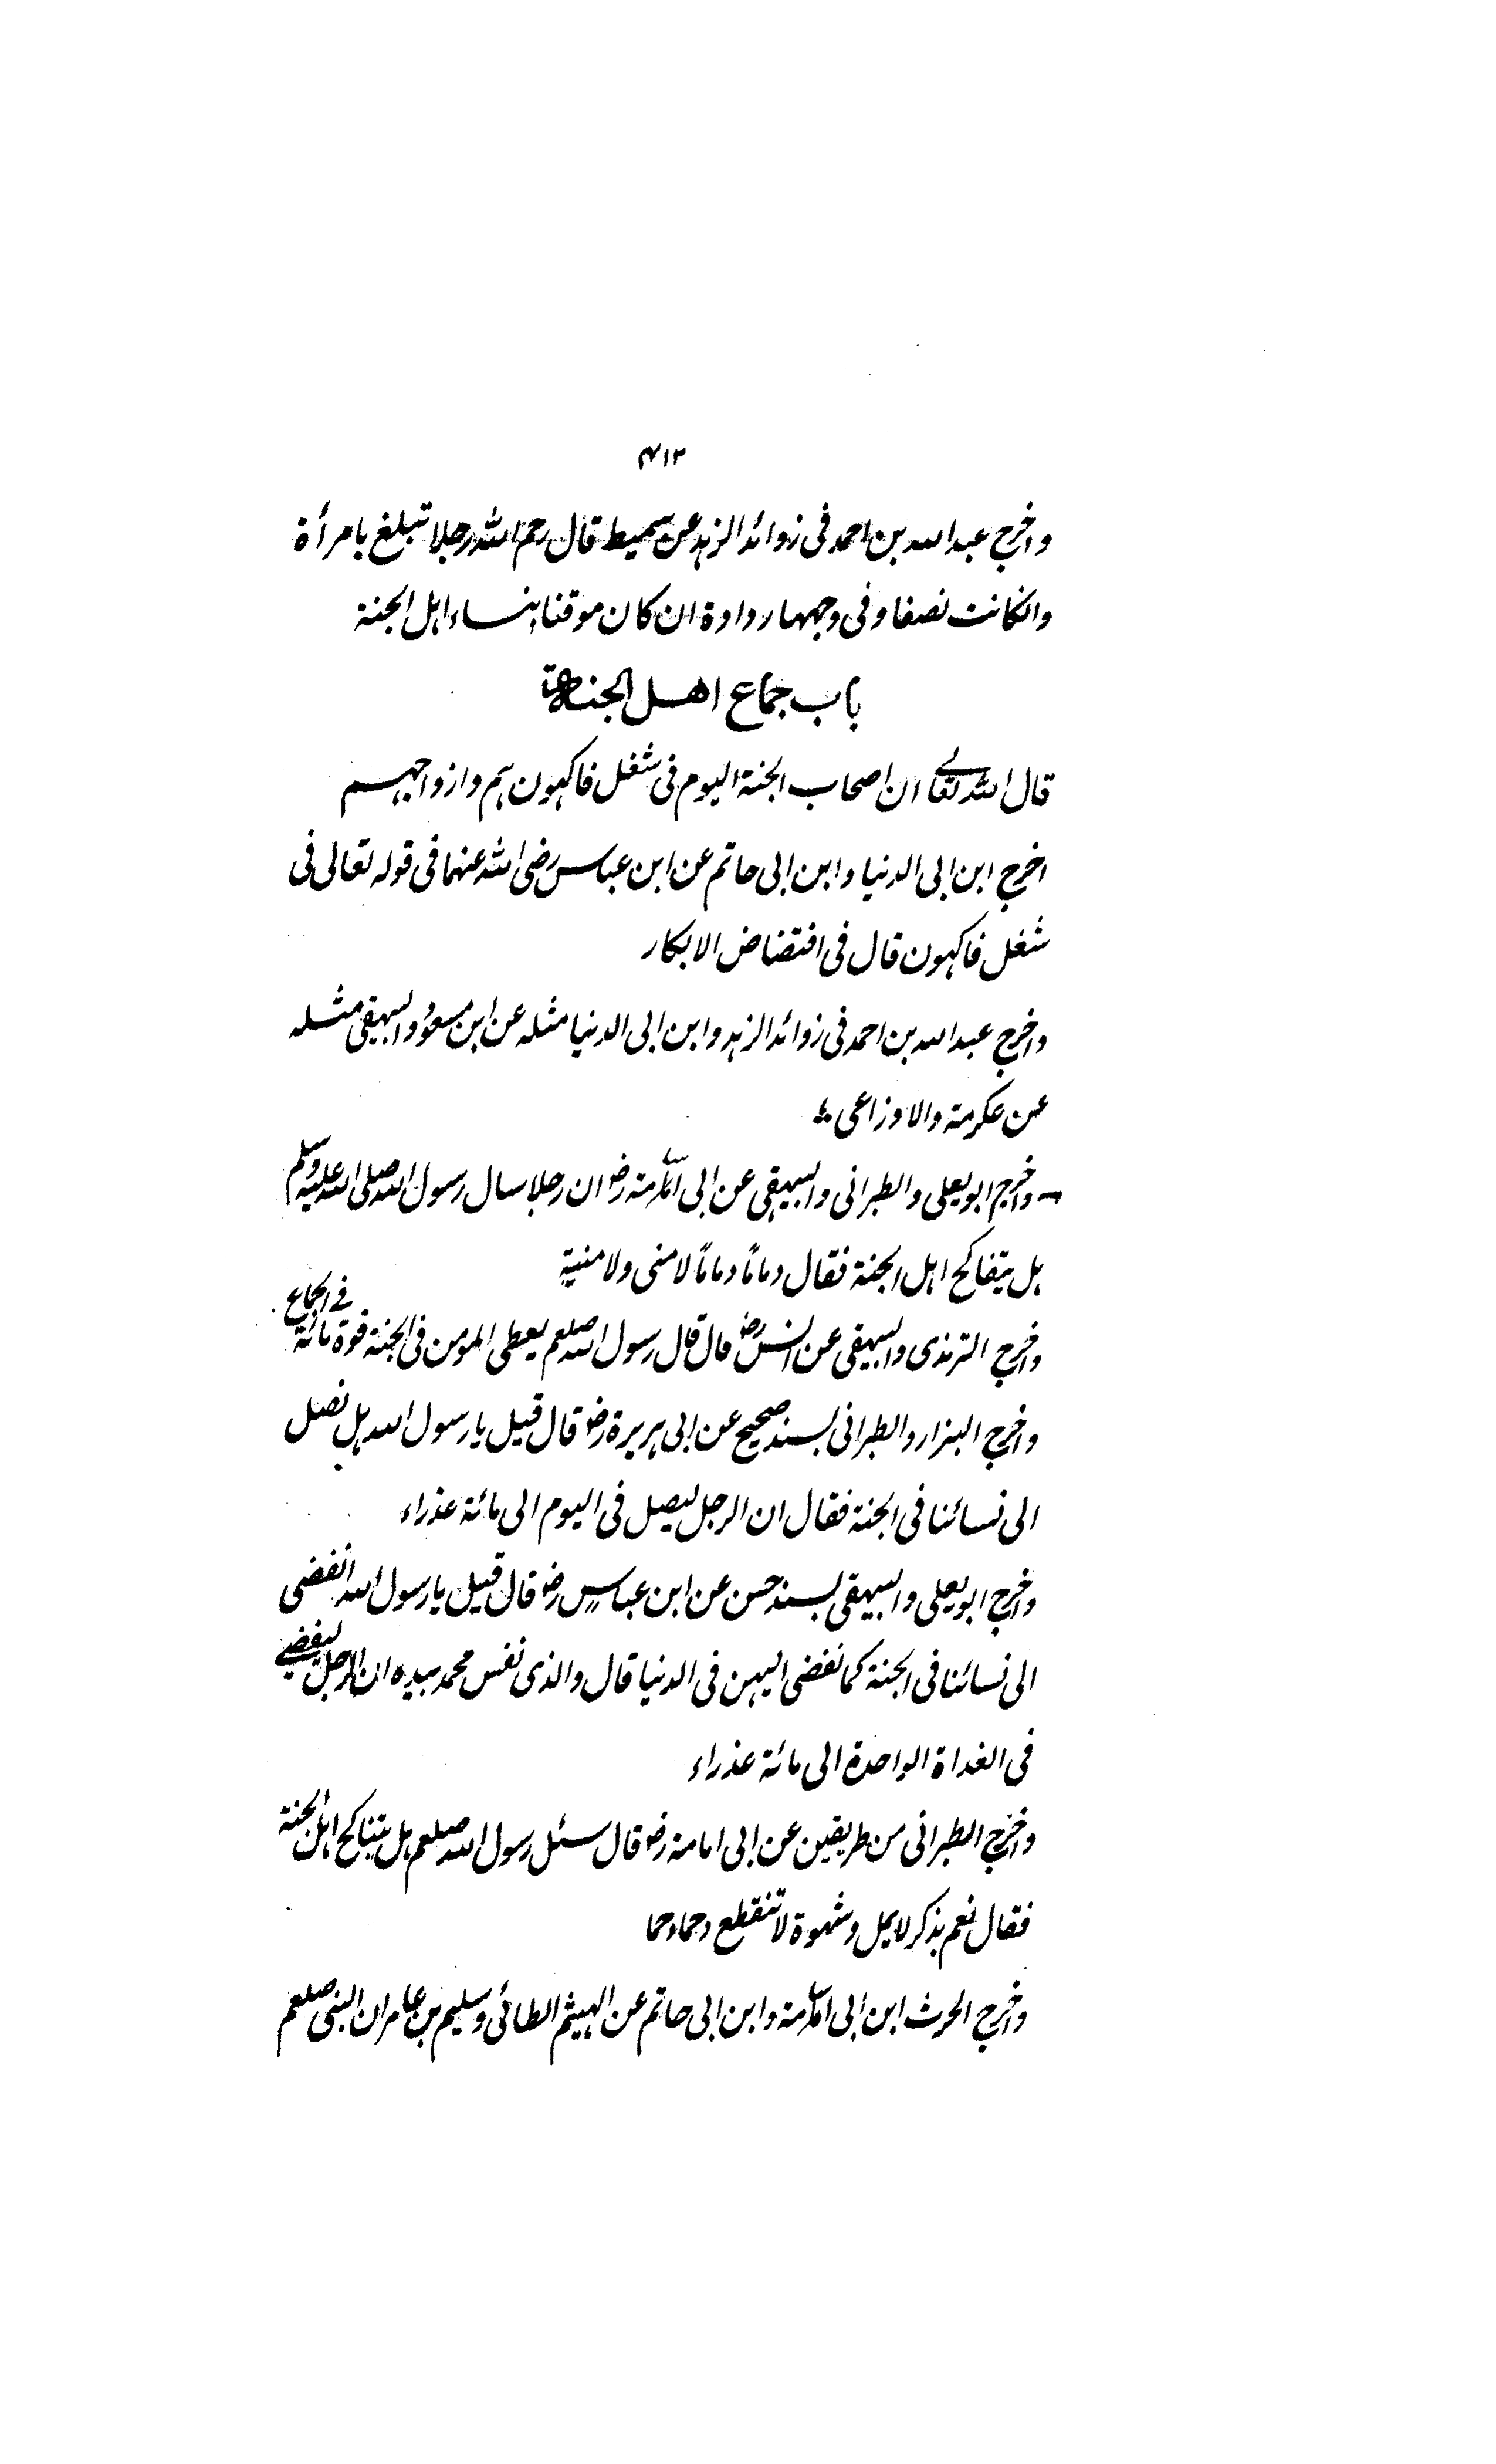 ۴۱۲
واخرج عبد الله بن احمد فی زوائد الزہد عن سمیط قال رحم الله رجلا تبلغ بامرأة
وانکانت نصفا وفی وجهہا ردادة ان کان موقنا بنساء اہل الجنة
باب جماع اهل الجنة
قال الله تعالے ان اصحاب الجنة الیوم فی شغل فاکہون ہم وازواجہم
اخرج ابن ابی الدنیا وابن ابی حاتم عن ابن عباس رضی الله عنہما فی قولہ تعالی فی
شغل فاکہون قال فی افتضاض الابکار
واخرج عبد الله بن احمد فی زوائد الزہد وابن ابی الدنیا مثلہ عن ابن مسعود والبیہقی مثلہ
عن عکرمة والاوزاعی
واخرج ابو یعلی والطبرانی والبیہقی عن ابی امامة رضہ ان رجلا سال رسول الله صلی الله علیہ وسلم
ہل یتفاکح اہل الجنة فقال دماماً دماماً لا منی ولا منیة
واخرج الترمذی والبیہقی عن انس رضہ قال قال رسول الله صلعم یعطی المومن فی الجنة قوة مائة فے الجماع
واخرج البزار والطبرانی بسند صحیح عن ابی ہریرة رضہ قال قیل یا رسول الله ہل نصل
الی نسائنا فی الجنة فقال ان الرجل لیصل فی الیوم الی مائة عذراء
واخرج ابو یعلی والبیہقی بسند حسن عن ابن عباس رضہ قال قیل یا رسول الله انفضی
الی نسائنا فی الجنة کما نفضی الیہن فی الدنیا قال والذی نفس محمد بیدہ ان الرجل لیفضے
فی الغداة الواحدة الی مائة عذراء
واخرج الطبرانی من طریقین عن ابی امامة رضہ قال سئل رسول الله صلعم ہل یتناکح اہل الجنة
فقال نعم بذکر لا یمل وشہوة لا تنقطع دحما دحما
واخرج الحرث ابن ابی اسامة وابن ابی حاتم عن الہیثم الطائی وسلیم بن عامر ان النبی صلعم